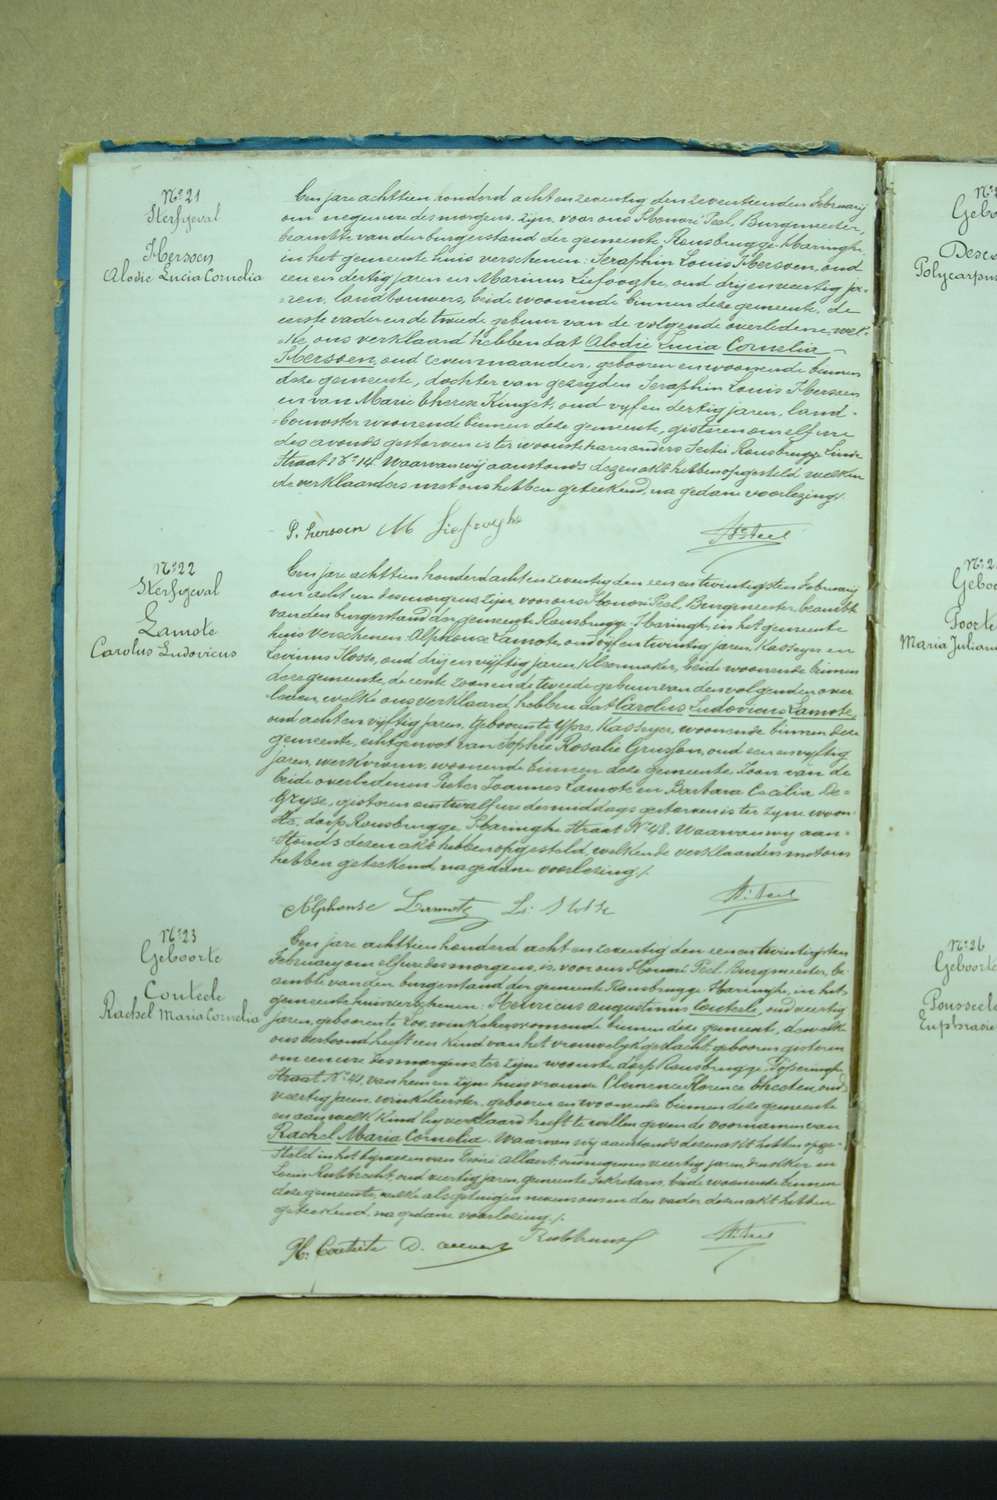 N° 21
Sterfgeval
Hersoen
Alodie Lucia Cornelia
Een jare achttien honderd acht en zeventig den zeventienden February
om negen ure des morgens, zyn voor ons Honoré Peel, Burgmeester,
beambte van den burgerstand der gemeente Rousbrugge-Haringhe,
in het gemeente huis verschenen: Seraphin Louis Hersoen, oud
een en dertig jaren en Marinus Liefooghe, oud dry en veertig ja-
-ren, landbouwers, beide woonende binnen deze gemeente, de
eerste vader en de tweede gebuur van de volgende overledene, wel-
-ke ons verklaard hebben dat Alodie Lucia Cornelia
Hersoen, oud zeven maanden, geboren en woonende binnen
deze gemeente, dochter van gezegden Seraphin Louis Hersoen
en van Marie Therese Kinget, oud vyf en dertig jaren, land-
-bouwster woonende binnen deze gemeente, gisteren om elf ure
des avonds gestorven is ter woonste haer ouders Sectie Rousbrugge
Straat N° 14. Waarvan wy aanstonds dezen akt hebben opgesteld, welken
de verklaarders met ons hebben geteekend, na gedane voorlezing.
P. hersoen M Liefooghe Hre Peel
N° 22
Sterfgeval
Lamote
Carolus Ludovicus
Een jare achttien honderd acht en zeventig den een en twintigsten February
om acht ure des morgens zyn voor ons Honoré Peel, Burgmeester, beambte
van den burgerstand der gemeente Rousbrugge-Haringhe, in het gemeente
huis verschenen: Alphonse Lamote, oud vyf en twintig jaren, Kassyer en
Levinus, oud dry en vyftig jaren Kleermaker, beide woonende binnen
deze gemeente, de eerste zoon en de tweede gebuur van den volgenden over-
ledenen, welke ons verklaard hebben dat Carolus Ludovicus Lamote,
oud acht en vyftig jaren, geboren te Yper, Kassyer, woonende binnen deze
gemeente, echtgenoot van Sophie Rosalie Gruson, oud een en vyftig
jaren, werkvrouw, woonende binnen deze gemeente, Zoon van de
beide overledenen Pieter Joannes Lamote en Barbara Cecilia De-
Gryse, gisteren om twalf ure des middags gestorven is ter zyner woon-
-ste, dorp Rousbrugge Haringhe Straat N° 48. Waarvan wy aan-
-stonds dezen akt hebben opgesteld, welken de verklaarders met ons
hebben geteekend, na gedane voorlezing.
Alphonse Lamote Hre Peel
N° 23
Geboorte
Couteele
Rachel Maria Cornelia
Een jare achttien honderd acht en zeventig den een en twintigsten
February om elf ure des morgens, is voor ons Honoré Peel, Burgmeester, be-
ambte van den burgerstand der gemeente Rousbrugge Haringhe, in het
gemeente huis verschenen: Henricus augustinus Couteele, oud veertig
jaren, geboren te Loo, winkelier, woonende binnen deze gemeente, dewelke
ons vertoond heeft een kind van het vrouwelyk geslacht, geboren gisteren
om een ure des morgens ter zyner woonste dorp Rousbrugge, Poperinghe
Straat N° 41, van hem en zyne huisvrouwe Clemence Florence, oud
veertig jaren, winkelierster, geboren en woonende binnen deze gemeente
en aan welk Kind hy verklaard heeft te willen geven de voornamen van
Rachel Maria Cornelia. Waarvan wy aanstonds dezen akt hebben opge-
steld in het bywezen van Desiré Allaert, oud negen en veertig jaren, drukker en
Louis Rubbrecht, oud veertig jaren, gemeente Sekretaris, beide woonende binnen
deze gemeente, welke als getuigen nevens ons en den vader dezen akt hebben
geteekend, na gedane voorlezing.
H. Couteele Rubbrecht Hre Peel
Polycarpus
Maria Julian
N° 26
Geboorte
Pousseele
Euphrasie